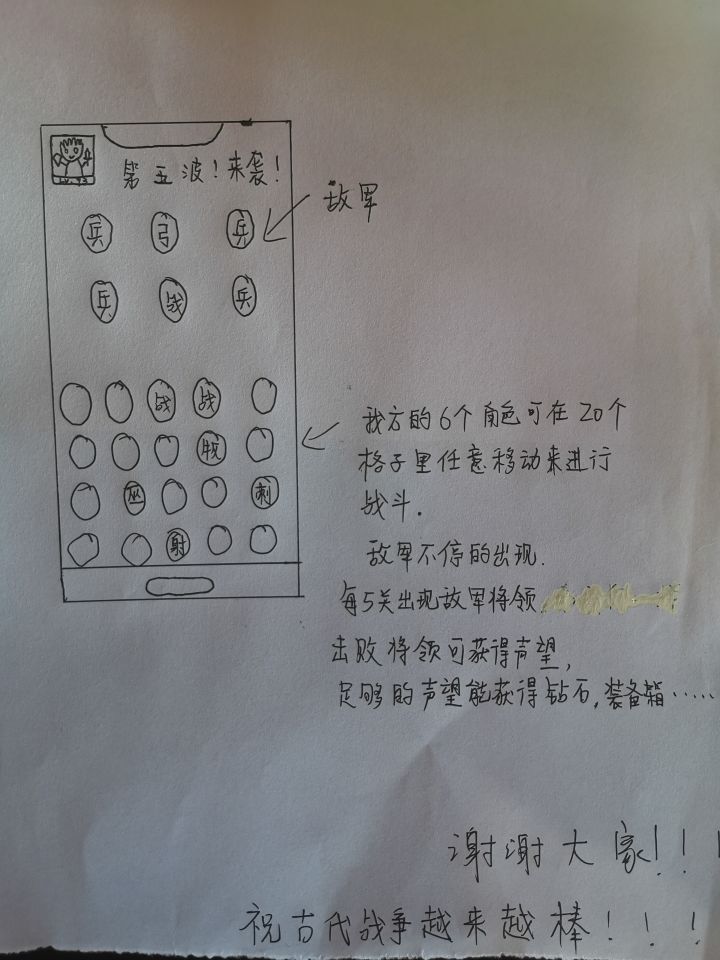 第五波！来袭！
敌军
兵 弓 兵
兵 战 兵
战 战
牧
巫 刺
射
我方的6个角色可在20个
格子里任意移动来进行
战斗.
敌军不停的出现.
每5关出现敌军将领
击败将领可获得声望,
足够的声望能获得钻石,装备箱……
谢谢大家!!!
祝古代战争越来越棒!!!